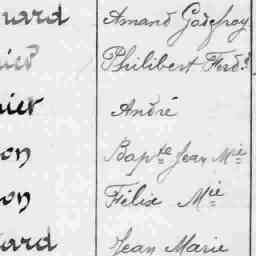 uard Amand Godefroy
nier Philibert Ferd.d
nier André
on Bapte Jean Mie
on Félix Mie
ard Jean Marie